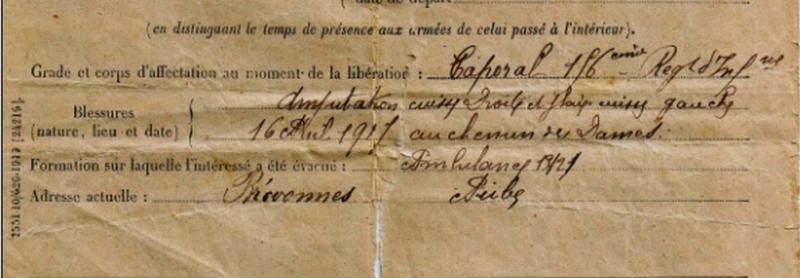 (en distinguant le temps de présence aux armées de celui passé à l'intérieur).
Grade et corps d'affectation au moment de la libération : Caporal 156 ème Regt d'Inf rie
Blessures
(nature, lieu et date)
Amputation cuisse Droite et plaie cuisse gauche
16 Avril 1917 au chemin des Dames.
Formation sur laquelle l'intéressé a été évacué : Ambulance
Adresse actuelle : Brévonnes Aube